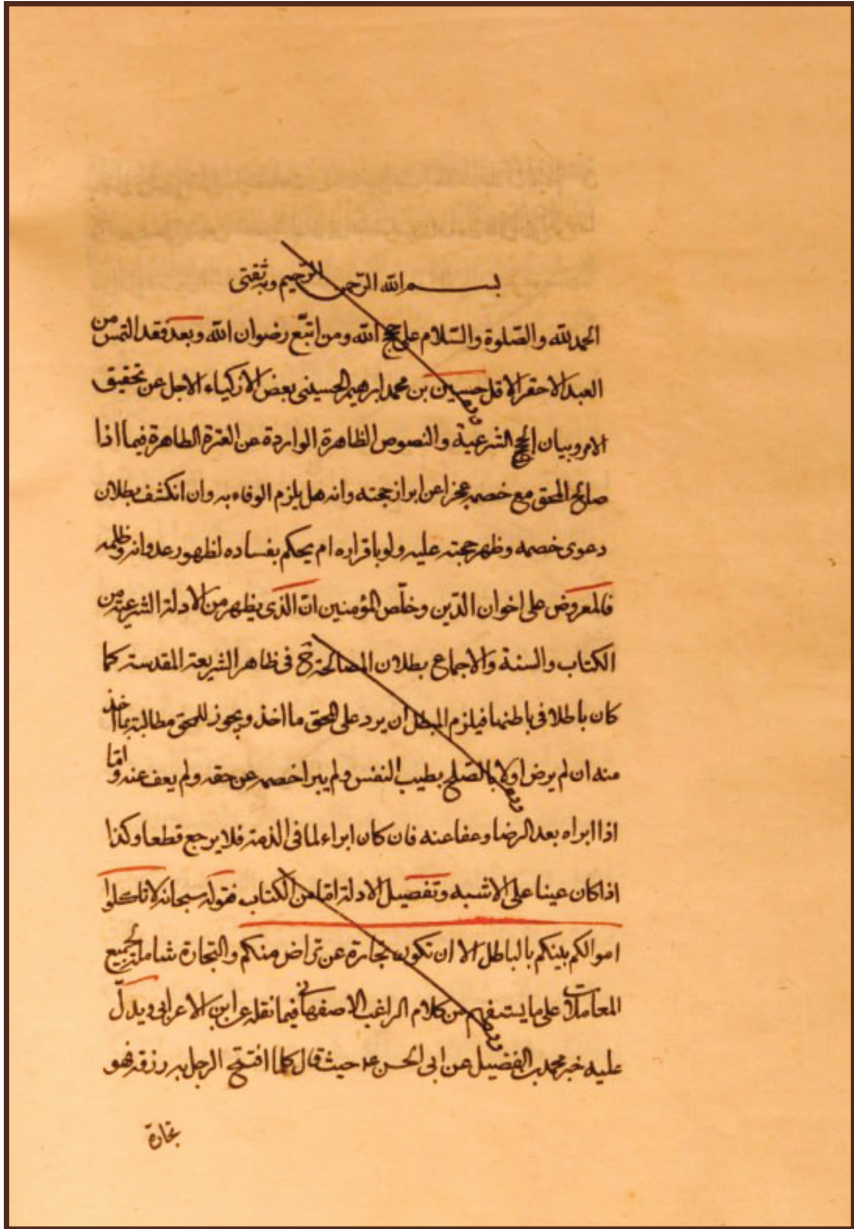 بسم الله الرحمن الرحيم وبه ثقتي
الحمد لله والصلوة والسلام على حجج الله ومن اتبع رضوان الله وبعد فقد التمس من
العبد الاحقر الاقل حسين بن محمد ابرهيم الحسيني بعض الازكياء الاجل عن تحقيق
الامر وبيان الحجج الشرعية والنصوص الظاهرة الواردة عن العترة الطاهرة فيما اذا
صالح المحق مع خصمه عجزا عن ابراز حجته وانه هل يلزم الوفاء به وان انكشف بطلان
دعوى خصمه وظهر حجته عليه ولو باقراره ام يحكم بفساده لظهور عدوانه وظلمه
فالمعروض على اخوان الدين وخلّص المؤمنين انّ الذى يظهر من الادلة الشرعية من
الكتاب والسنة والاجماع بطلان المصالحة ح في ظاهر الشريعة المقدسة كما
كان باطلا في باطنها فيلزم المبطل ان يرد على المحق ما اخذ ويجوز للمحق مطالبة ما اخذ
منه ان لم يرض اولا بالصلح بطيب النفس ولم يبرا خصمه عن حقه ولم يعف عنه واما
اذا ابراه بعد الرضا وعفا عنه فان كان ابراء لما في الذمة فلا يرجع قطعا وكذا
اذا كان عينا على الاشبه وتفصيل الادلة اما من الكتاب فقوله سبحانه لا تاكلوا
اموالكم بينكم بالباطل الا ان تكون تجارة عن تراض منكم والتجارة شاملة لجميع
المعاملات على ما يستفهم من كلام الراغب الاصفهاني فيما نقله عن ابن الاعرابي ويدلّ
عليه خبر محمد بن الفضيل عن ابى الحسن ع حيث قال كلما افتتح الرجل به رزقه فهو
تجارة